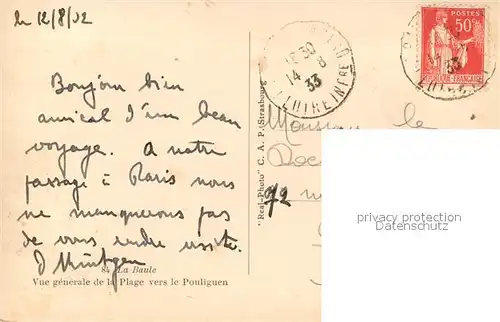 le 12/8/32
Bonjour bien
amical d'un beau
voyage. A notre
passage à Paris nous
ne manquerons pas
de vous rendre visite.
84 La Baule
Vue générale de la Plage vers le Pouliguen
"Real-Photo" C. A. P. (Strasbourg
18 30
14 - 8
33
LOIRE INFRE
POSTES
50c
REPUBLIQUE FRANÇAISE
33
Monsieur le
72
privacy protection
Datenschutz